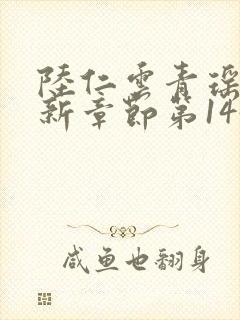 陸仁雲青瑶
新章節第14
咸鱼也翻身